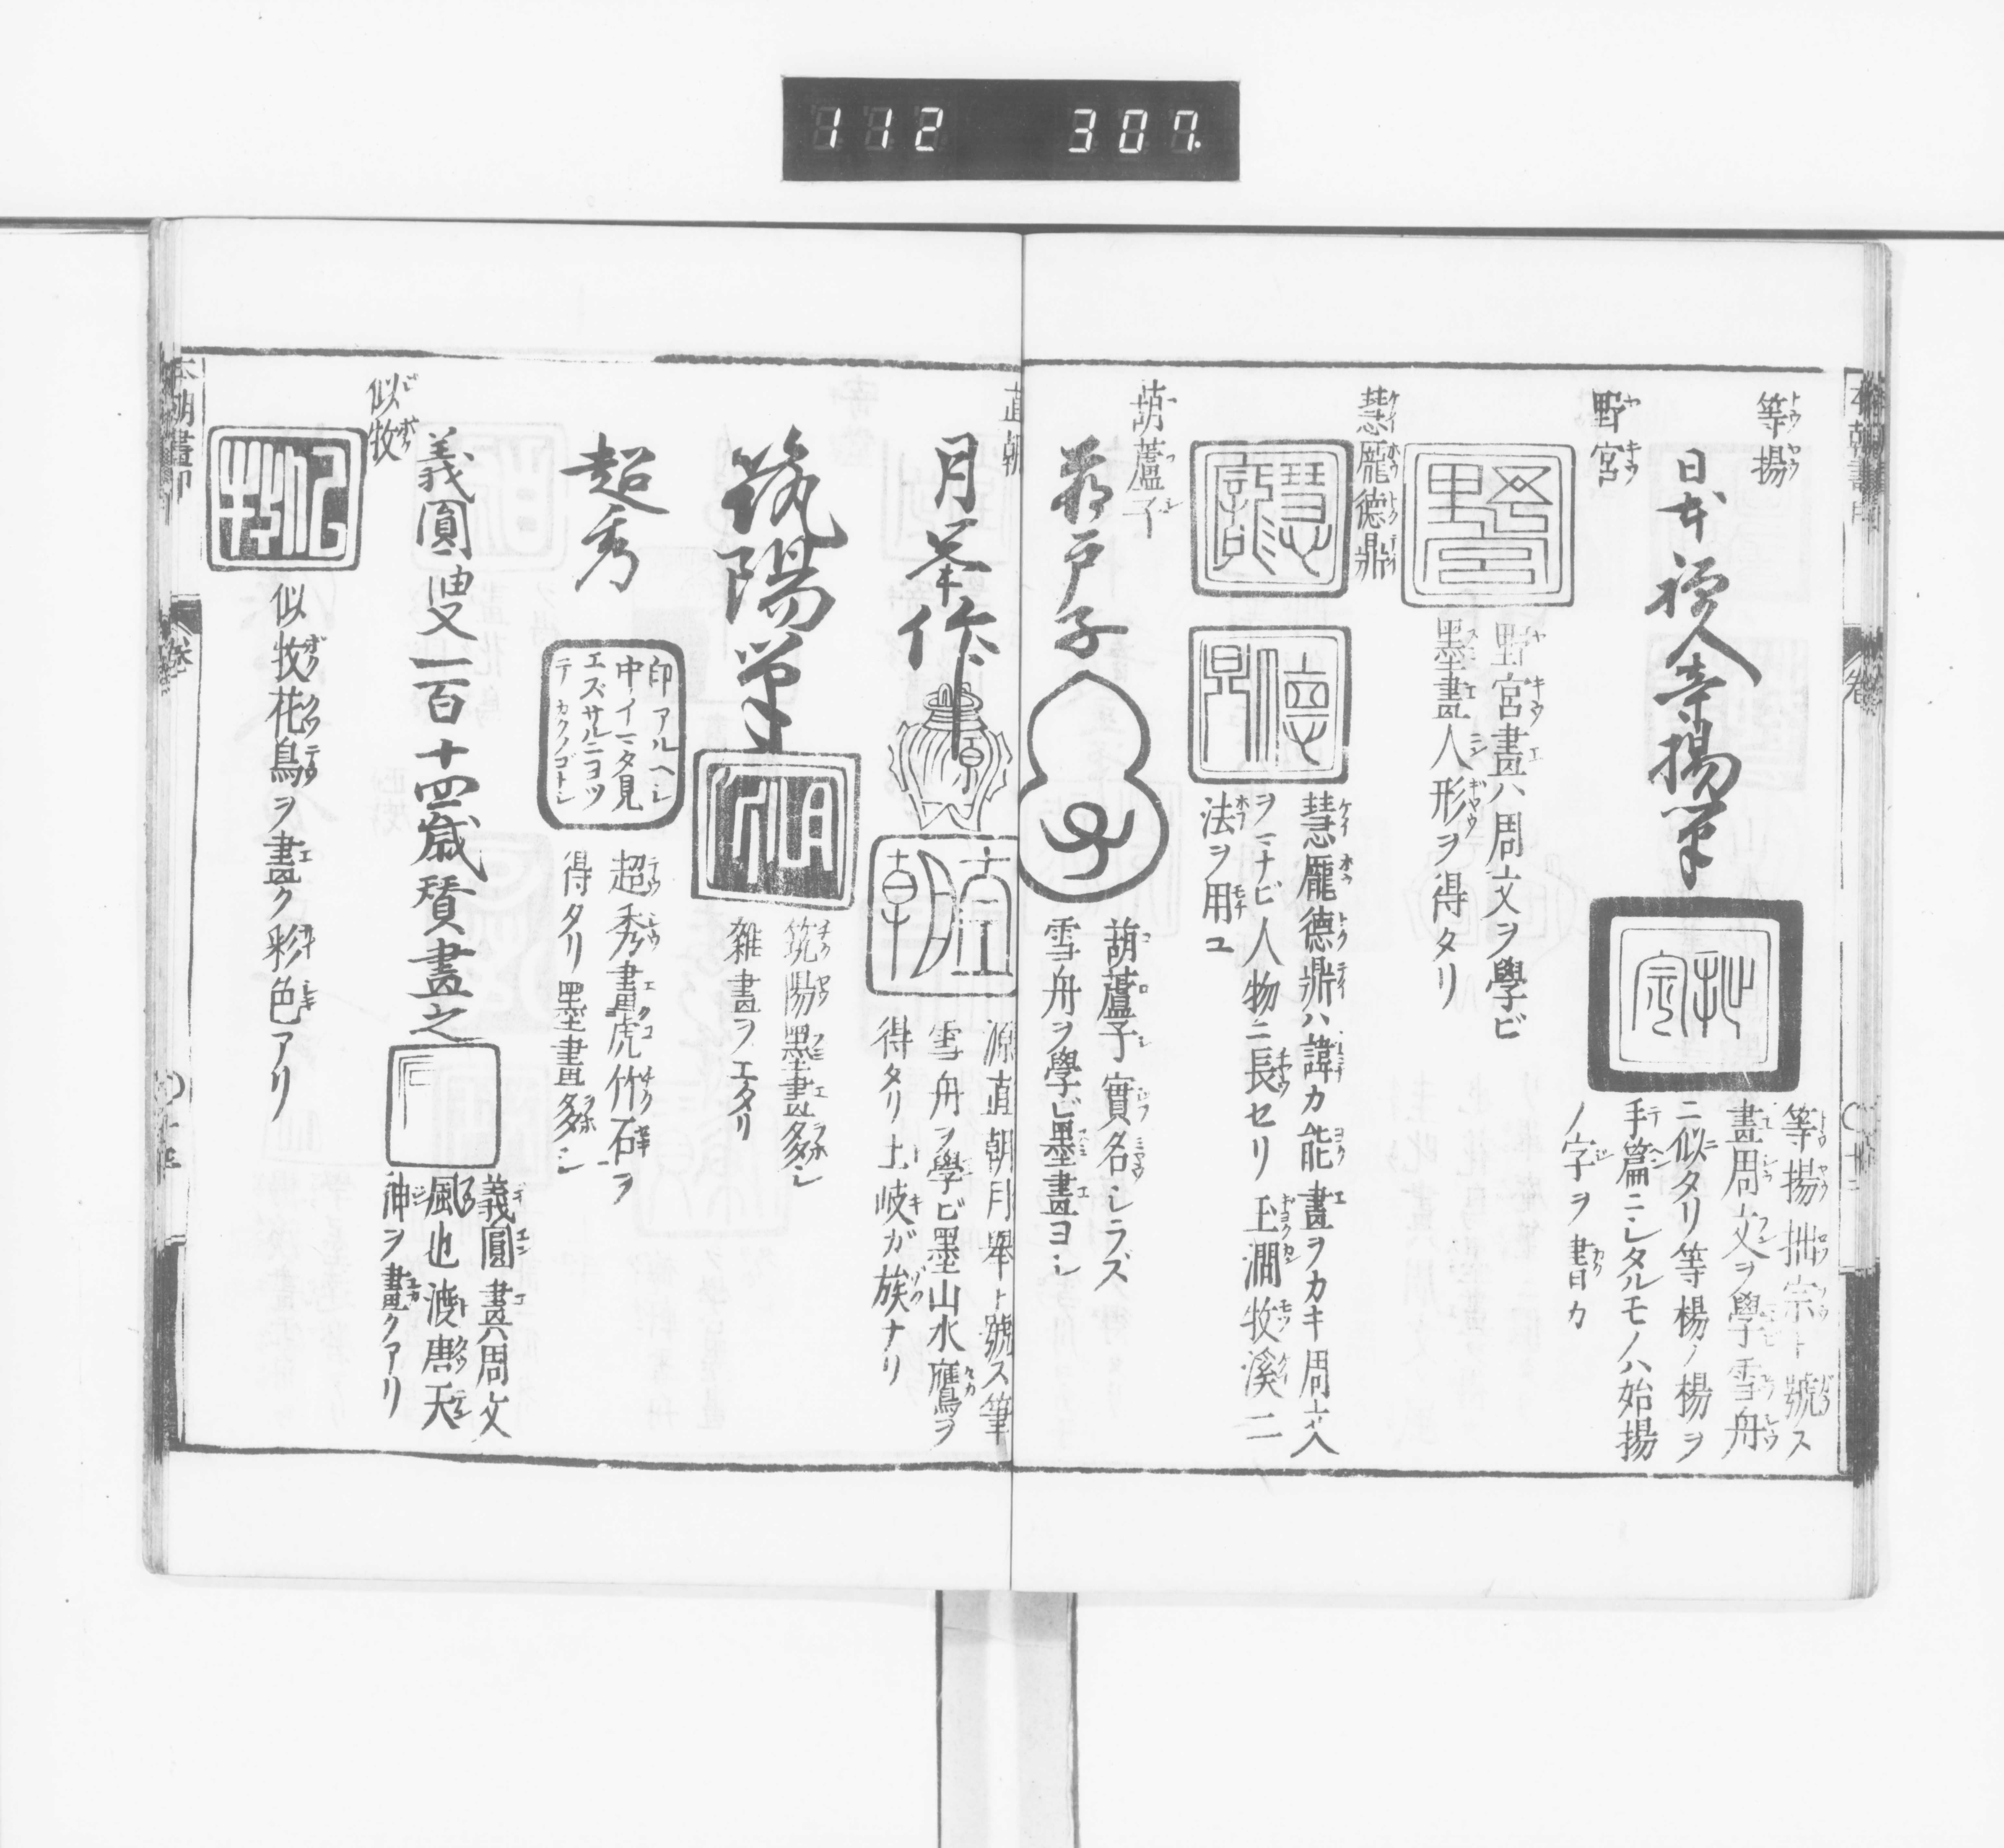 112 307
等揚
日本禅人等揚筆
等揚拙宗ト號ス
畫周文ヲ學雪舟
ニ似タリ等楊ノ楊ヲ
手篇ニシタルモノハ始揚
ノ字ヲ書カ
野宮
野宮畫ハ周文ヲ學ビ
墨畫人形ヲ得タリ
慧龎德鼎
慧龎德鼎ハ諱カ能畫ヲカキ周文
ヲマナビ人物ニ長セリ玉澗牧溪二
法ヲ用ユ
葫蘆子
葫蘆子實名シラズ
雪舟ヲ學ビ墨畫ヨシ
直朝
月峯作
源直朝月舉ト號ス筆
雪舟ヲ學ビ墨山水鷹ヲ
得タリ土岐ガ族ナリ
筑陽筆
筑陽墨畫多シ
雜畫ヲエタリ
超秀
印アルヘシ
中イマタ見
エズサルニヨツ
テカクノゴトシ
超秀畫虎竹石ヲ
得タリ墨畫多シ
義圓叟一百十四歳賛畫之
義圓畫ハ周文
風也渡唐天
神ヲ畫クアリ
似牧
似牧花鳥ヲ畫ク彩色アリ
本朝畫印